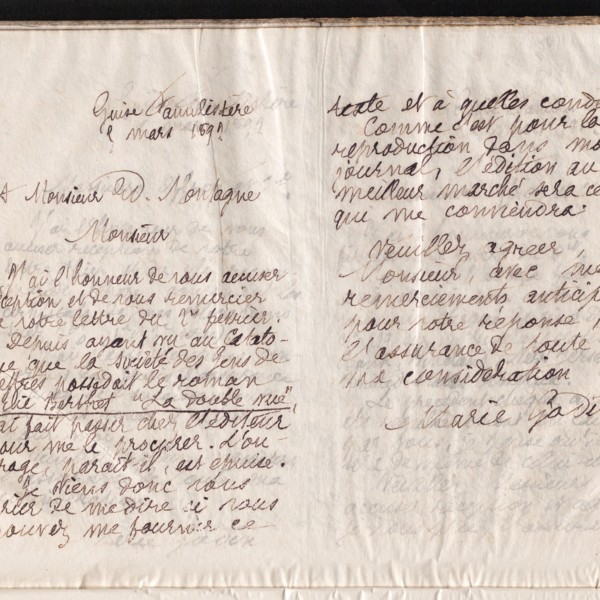 Guise Familistère
mars 189
A Monsieur Ed. Montagne
Monsieur
J'ai l'honneur de vous accuser
ception et de vous remercier
e votre lettre du 1er février.
Depuis ayant vu au Catalo-
ue que la société des gens de
ettres possédait le roman
lie Berthet "La double vue",
ai fait passer chez l'éditeur
our me le procurer. L'ou-
rage, paraît-il, est épuisé.
Je viens donc vous
rier de me dire si vous
ouvez me fournir ce
texte et à quelles cond
Comme c'est pour la
reproduction dans mo
journal, l'édition au
meilleur marché sera ce
que me conviendra.
Veuillez agréer,
onsieur, avec me
remerciements anticip
pour votre réponse,
l'assurance de toute
ma considération
Marie Godi